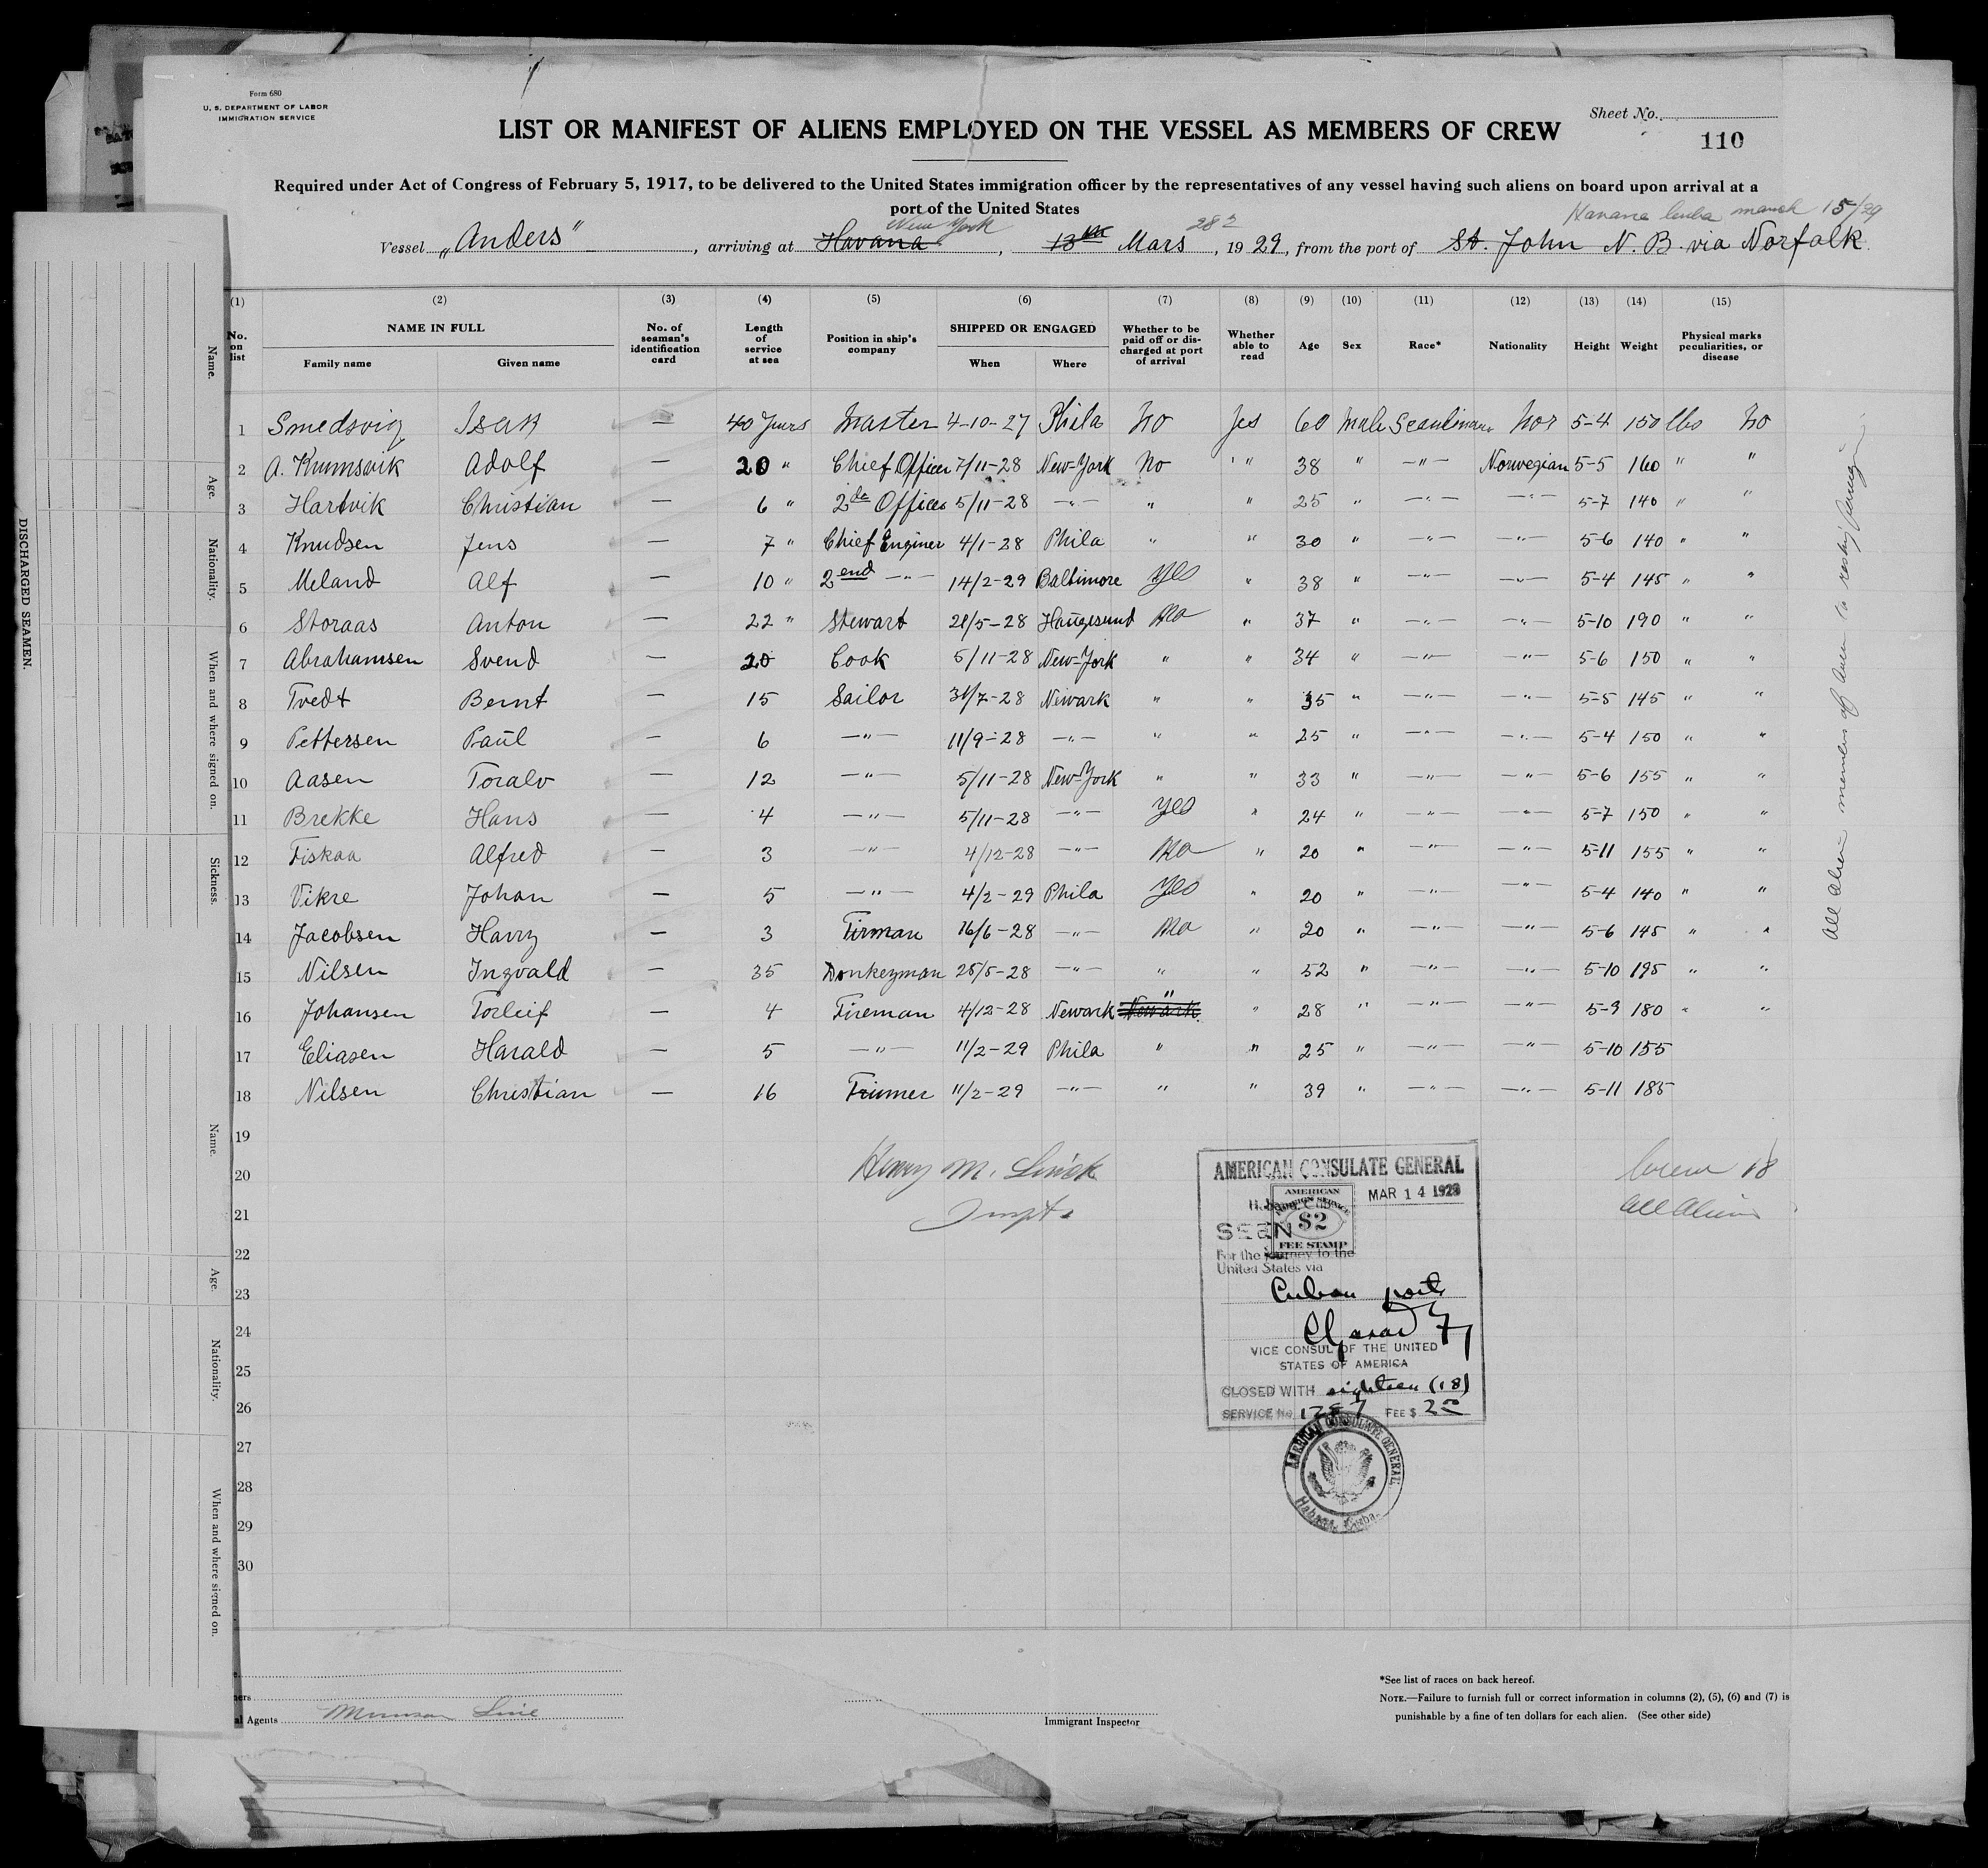 Form 680
U. S. DEPARTMENT OF LABOR
IMMIGRATION SERVICE
Sheet No.
110
LIST OR MANIFEST OF ALIENS EMPLOYED ON THE VESSEL AS MEMBERS OF CREW
Required under Act of Congress of February 5, 1917, to be delivered to the United States immigration officer by the representatives of any vessel having such aliens on board upon arrival at a
port of the United States
New York 28 Havana Cuba march 15/29
Vessel „Anders“, arriving at Havana, 13th Mars, 1929, from the port of St. John N. B. via Norfolk
(1) (2) (3) (4) (5) (6) (7) (8) (9) (10) (11) (12) (13) (14) (15)
No. on list NAME IN FULL Family name Given name No. of seaman's identification card Length of service at sea Position in ship's company SHIPPED OR ENGAGED When Where Whether to be paid off or discharged at port of arrival Whether able to read Age Sex Race* Nationality Height Weight Physical marks peculiarities, or disease
1 Smedsvig Isak — 40 Years Master 4-10-27 Phila No Yes 60 Male Nor 5-4 150 lbs No
2 A. Krumsvik Adolf — 20 " Chief Officer 7/11-28 New-York No " 38 " —"— Norwegian 5-5 160 " "
3 Hartvik Christian — 6 " 2de Officer 5/11-28 —"— " " 25 " —"— —"— 5-7 140 " "
4 Knudsen Jens — 7 " Chief Enginer 4/1-28 Phila " " 30 " —"— —"— 5-6 140 " "
5 Meland Alf — 10 " 2end —"— 14/2-29 Baltimore Yes " 38 " —"— —"— 5-4 145 " "
6 Storaas Anton — 22 " Stewart 21/5-28 Haugesund No " 37 " —"— —"— 5-10 190 " "
7 Abrahamsen Svend — 20 Cook 5/11-28 New-York " " 34 " —"— —"— 5-6 150 " "
8 Tvedt Bernt — 15 Sailor 31/7-28 Newark " " 35 " —"— —"— 5-5 145 " "
9 Pettersen Paul — 6 —"— 11/9-28 —"— " " 25 " —"— —"— 5-4 150 " "
10 Aasen Toralv — 12 —"— 5/11-28 New-York " " 33 " —"— —"— 5-6 155 " "
11 Brekke Hans — 4 —"— 5/11-28 —"— Yes " 24 " —"— —"— 5-7 150 " "
12 Fiskaa Alfred — 3 —"— 4/12-28 —"— No " 20 " —"— —"— 5-11 155 " "
13 Vikre Johan — 5 —"— 4/2-29 Phila Yes " 20 " —"— —"— 5-4 140 " "
14 Jacobsen Harry — 3 Firman 16/6-28 —"— No " 20 " —"— —"— 5-6 145 " "
15 Nilsen Ingvald — 35 Donkeyman 25/5-28 —"— " " 52 " —"— —"— 5-10 195 " "
16 Johansen Torleif — 4 Fireman 4/12-28 Newark Newark " " 28 " —"— —"— 5-9 180 " "
17 Eliasen Harald — 5 —"— 11/2-29 Phila " " 25 " —"— —"— 5-10 155
18 Nilsen Christian — 16 11/2-29 —"— " " 39 " —"— —"— 5-11 185
19
20
21
22
23
24
25
26
27
28
29
30
Henry M.
Crew 18
All Alien
All alien members of crew
AMERICAN CONSULATE GENERAL
Habana, Cuba
MAR 14 1929
AMERICAN
FOREIGN SERVICE
$2
FEE STAMP
SEEN
For the journey to the
United States via
Cuban ports
VICE CONSUL OF THE UNITED
STATES OF AMERICA
CLOSED WITH eighteen (18)
SERVICE No. FEE $ 2
AMERICAN CONSULATE GENERAL
Habana, Cuba
Agents Munson Line
Immigrant Inspector
*See list of races on back hereof.
NOTE.—Failure to furnish full or correct information in columns (2), (5), (6) and (7) is
punishable by a fine of ten dollars for each alien. (See other side)
DISCHARGED SEAMEN.
Name.
Age.
Nationality.
When and where signed on.
Sickness.
Name.
Age.
Nationality.
When and where signed on.